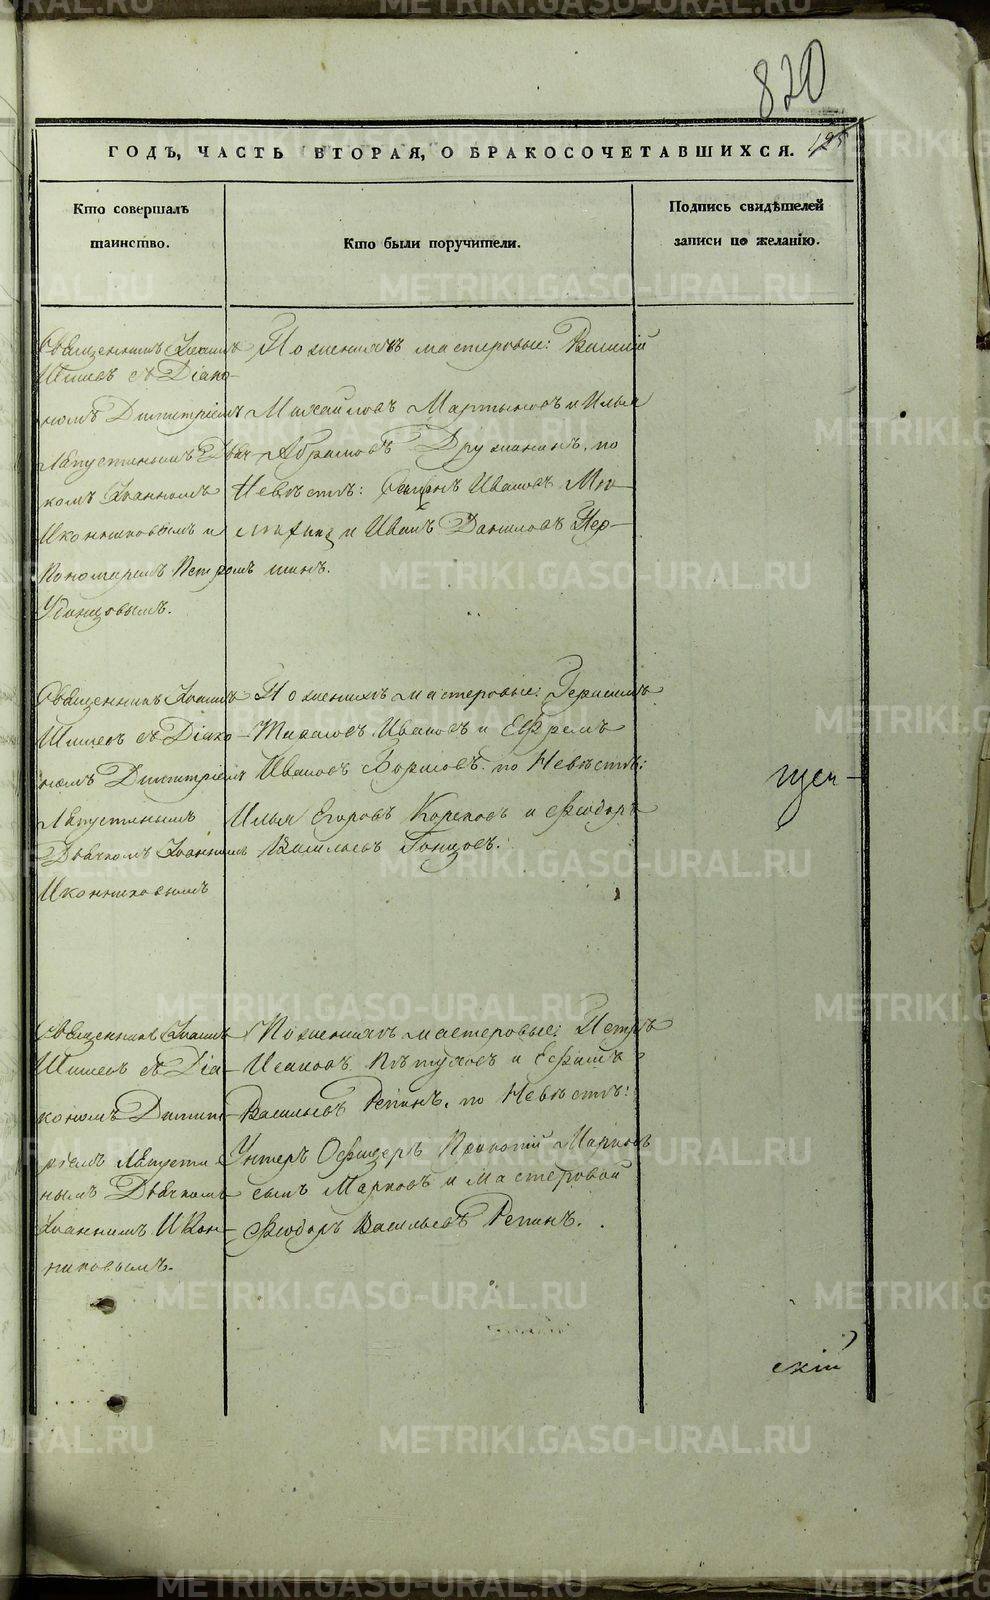 820
125
ГОДЪ, ЧАСТЬ ВТОРАЯ, О БРАКОСОЧЕТАВШИХСЯ.
Кто совершалъ
таинство.
Кто были поручители.
Подпись свидѣтелей
записи по желанію.
Священникъ Іоаннъ
Шишевъ съ Діако-
номъ Димитріемъ
Лапустинымъ Дьяч-
комъ Іоанномъ
Иконниковымъ и
Пономаремъ Петромъ
Удинцовымъ.
По женихѣ мастеровые: Василий
Михайловъ Мартыновъ и Илья
Абрамовъ Дружининъ, по
Невѣстѣ: Иванов
и Иванъ Даниловъ Пер-
шинъ.
Священникъ Іоаннъ
Шишевъ съ Діако-
номъ Димитріемъ
Лапустинымъ
Дьячкомъ Іоанномъ
Иконниковымъ
По женихѣ мастеровые: Герасимъ
Ивановъ и Ефремъ
Ивановъ по Невѣстѣ:
Илья Егоровъ и Ѳеодоръ
Васильевъ Гонцовъ.
щен-
Священникъ Іоаннъ
Шишевъ съ Діа-
кономъ Димит-
ріемъ Лапусти-
нымъ Дьячкомъ
Іоанномъ Икон-
никовымъ.
По женихѣ мастеровые: Петръ
Исаковъ Пѣтуховъ и Ефимъ
Васильевъ Репинъ, по Невѣстѣ:
Унтеръ Офицеръ Прокопій Марковъ
сынъ Марковъ и Мастеровой
Ѳеодоръ Васильевъ Репинъ.
скій
METRIKI.GASO-URAL.RU